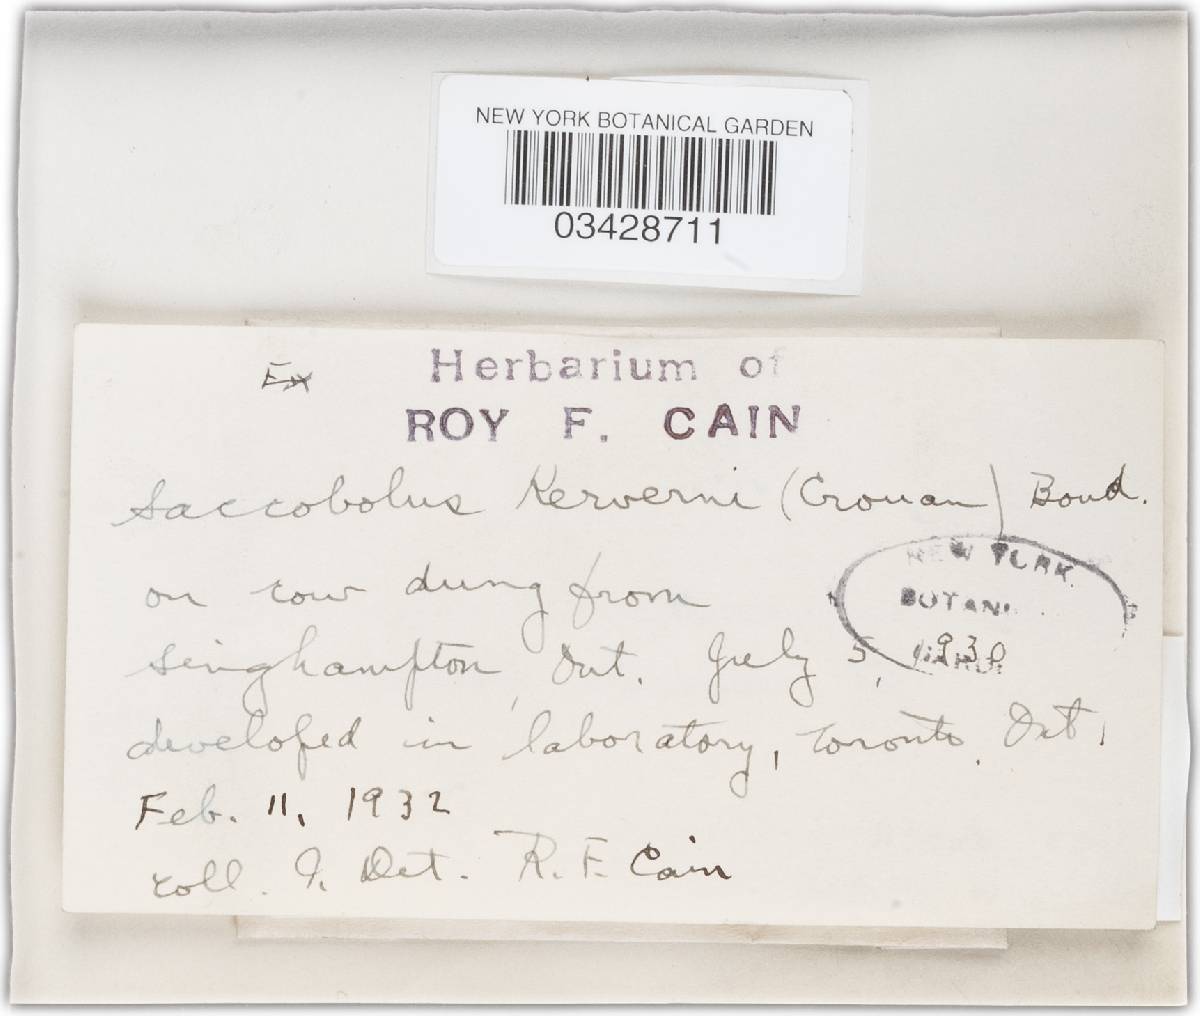 NEW YORK BOTANICAL GARDEN
03428711
Ex Herbarium of
ROY F. CAIN
Saccobolus Kerverni (Crouan) Boud.
on cow dung from
Singhampton, Ont. July 5, 1930
NEW YORK
BOTANI
developed in laboratory, Toronto, Ont.
Feb. 11, 1932
coll. & Det. R. F. Cain